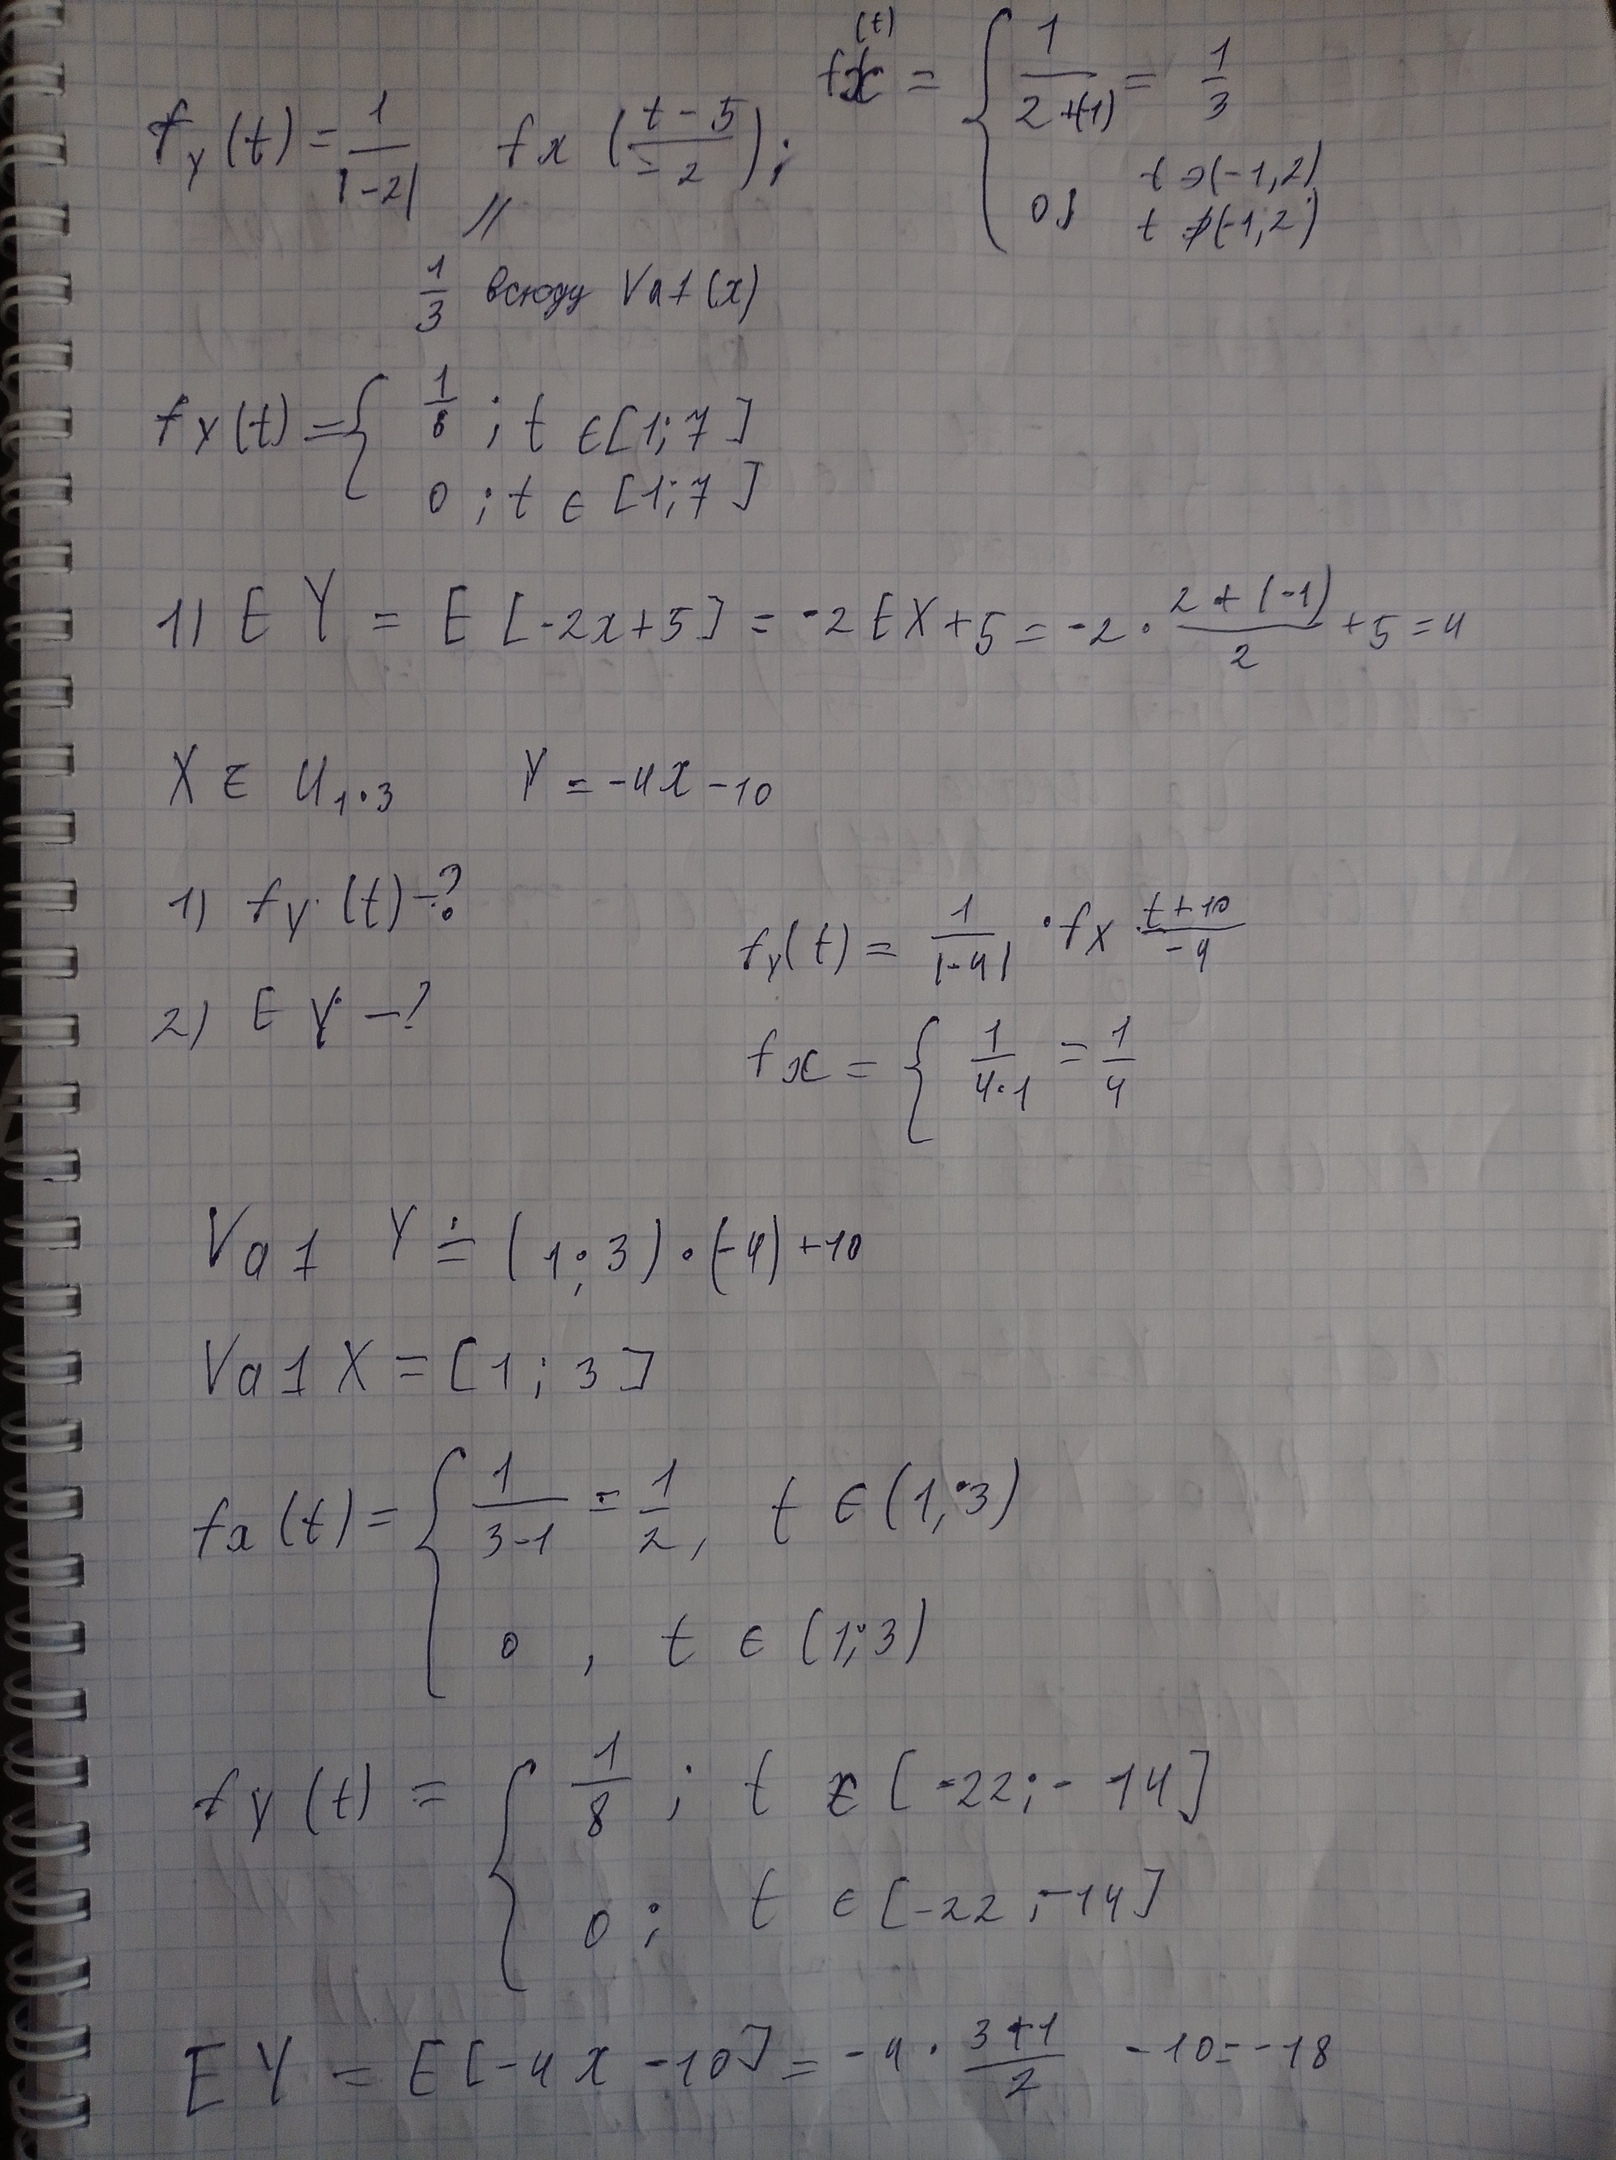 f_Y(t) = 1/|-2| f_x ((t-5)/-2);
f_x(t) = { 1/(2+(-1)) = 1/3
t ∋ (-1,2)
0; t ∌ (-1,2)
||
1/3 всюду Val(x)
f_Y(t) = { 1/6 ; t ∈ [1;7]
0 ; t ∈ [1;7]
1) E Y = E [-2x+5] = -2EX+5 = -2 · (2+(-1))/2 + 5 = 4
X ∈ U_1;3 Y = -4x - 10
1) f_Y (t) - ?
f_Y(t) = 1/|-4| · f_X (t+10)/-4
2) E Y - ?
f_x = { 1/(4·1) = 1/4
Val Y = (1;3) · (-4) + 10
Val X = [1;3]
f_x(t) = { 1/(3-1) = 1/2, t ∈ (1;3)
0, t ∈ (1;3)
f_Y(t) = { 1/8 ; t ∈ [-22;-14]
0; t ∈ [-22;-14]
E Y = E [-4x - 10] = -4 · (3+1)/2 - 10 = -18